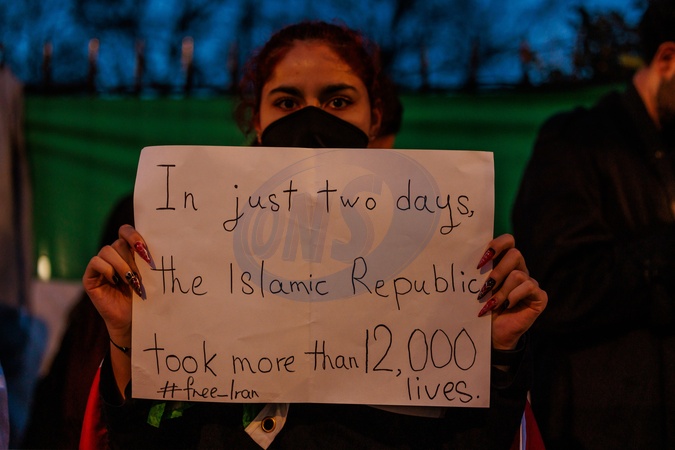 In just two days,
the Islamic Republic
took more than 12,000
lives.
#free_Iran
ONS